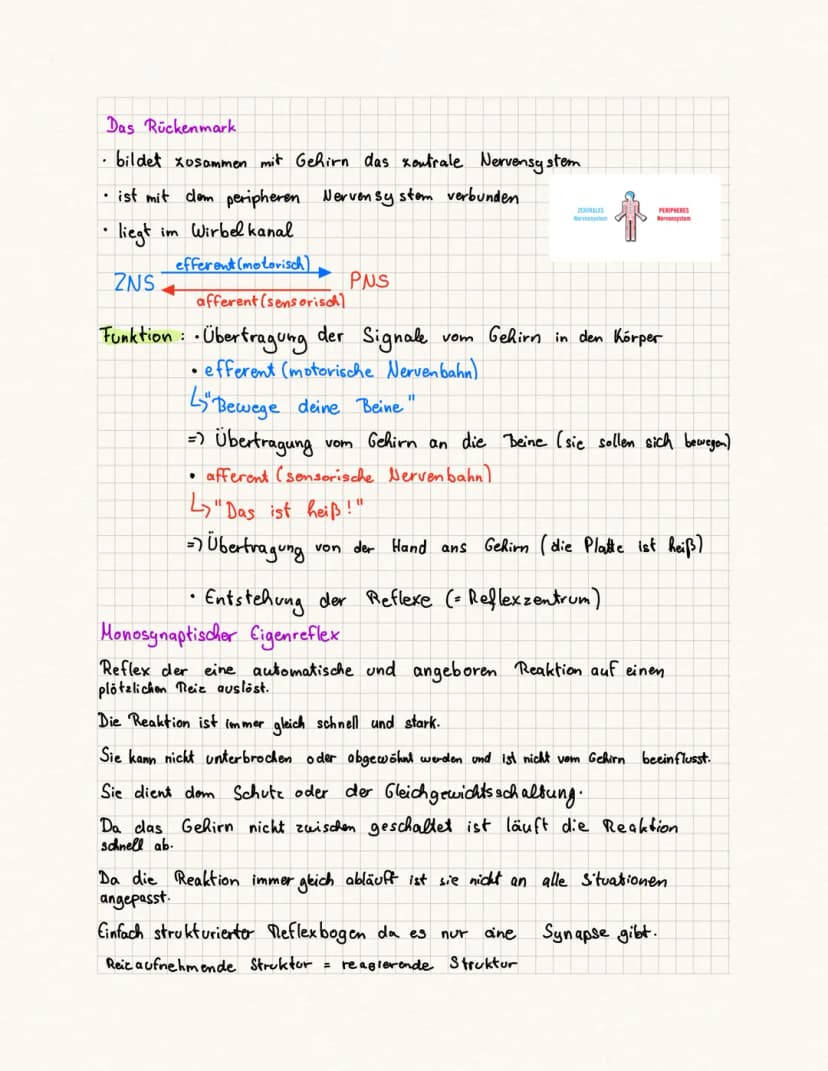 Das Rückenmark
· bildet zusammen mit Gehirn das zentrale Nervensystem
· ist mit dem peripheren Nervensystem verbunden
ZENTRALES Nervensystem
PERIPHERES Nervensystem
· liegt im Wirbelkanal
efferent (motorisch)
ZNS PNS
afferent (sensorisch)
Funktion: · Übertragung der Signale vom Gehirn in den Körper
• efferent (motorische Nervenbahn)
↳ "Bewege deine Beine"
=> Übertragung vom Gehirn an die Beine (sie sollen sich bewegen)
• afferent (sensorische Nervenbahn)
↳ "Das ist heiß!"
=> Übertragung von der Hand ans Gehirn (die Platte ist heiß)
· Entstehung der Reflexe (= Reflexzentrum)
Monosynaptischer Eigenreflex
Reflex der eine automatische und angeboren Reaktion auf einen
plötzlichen Reiz auslöst.
Die Reaktion ist immer gleich schnell und stark.
Sie kann nicht unterbrochen oder abgewöhnt werden und ist nicht vom Gehirn beeinflusst.
Sie dient dem Schutz oder der Gleichgewichtsschaltung.
Da das Gehirn nicht zwischen geschaltet ist läuft die Reaktion
schnell ab.
Da die Reaktion immer gleich abläuft ist sie nicht an alle Situationen
angepasst.
Einfach strukturierter Reflexbogen da es nur eine Synapse gibt.
Reizaufnehmende Struktur = reagierende Struktur